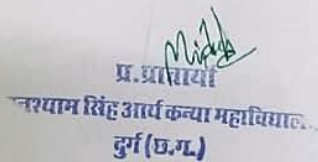 प्र. प्राचार्या
नश्याम सिंह आर्य कन्या महाविद्याल
दुर्ग (छ.ग.)